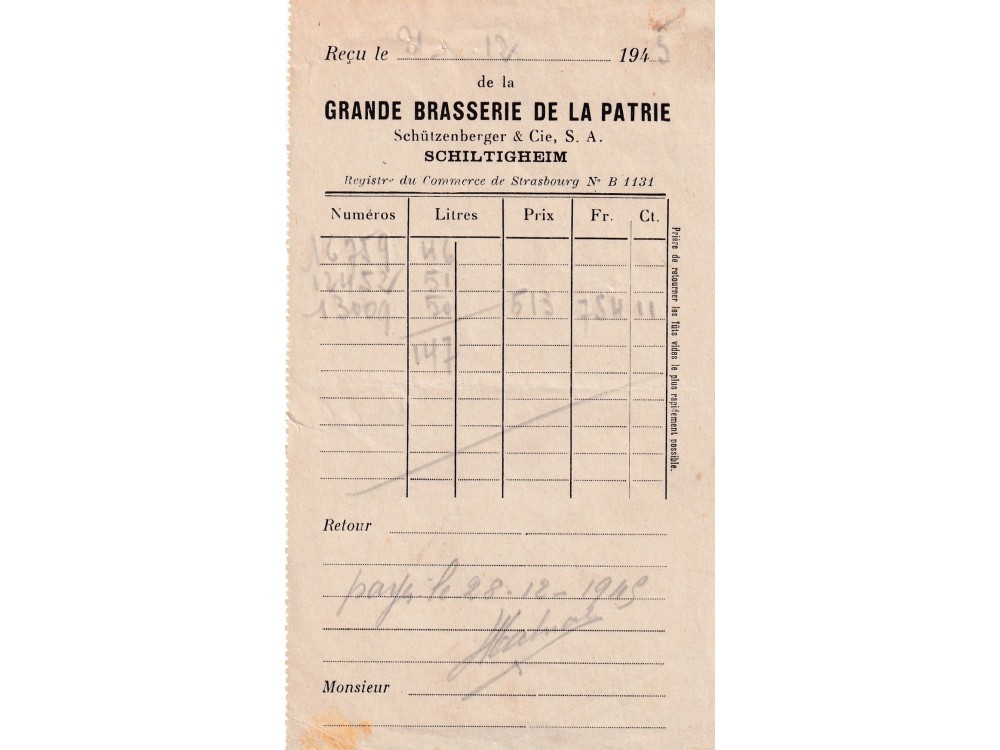 Reçu le 21 - 12 1945
de la
GRANDE BRASSERIE DE LA PATRIE
Schützenberger & Cie, S. A.
SCHILTIGHEIM
Registre du Commerce de Strasbourg N° B 1131
Numéros Litres Prix Fr. Ct.
16759 46
51
13009 50 513 754 11
147
Prière de retourner les fûts vides le plus rapidement possible.
Retour
payé le 28-12-1945
Monsieur